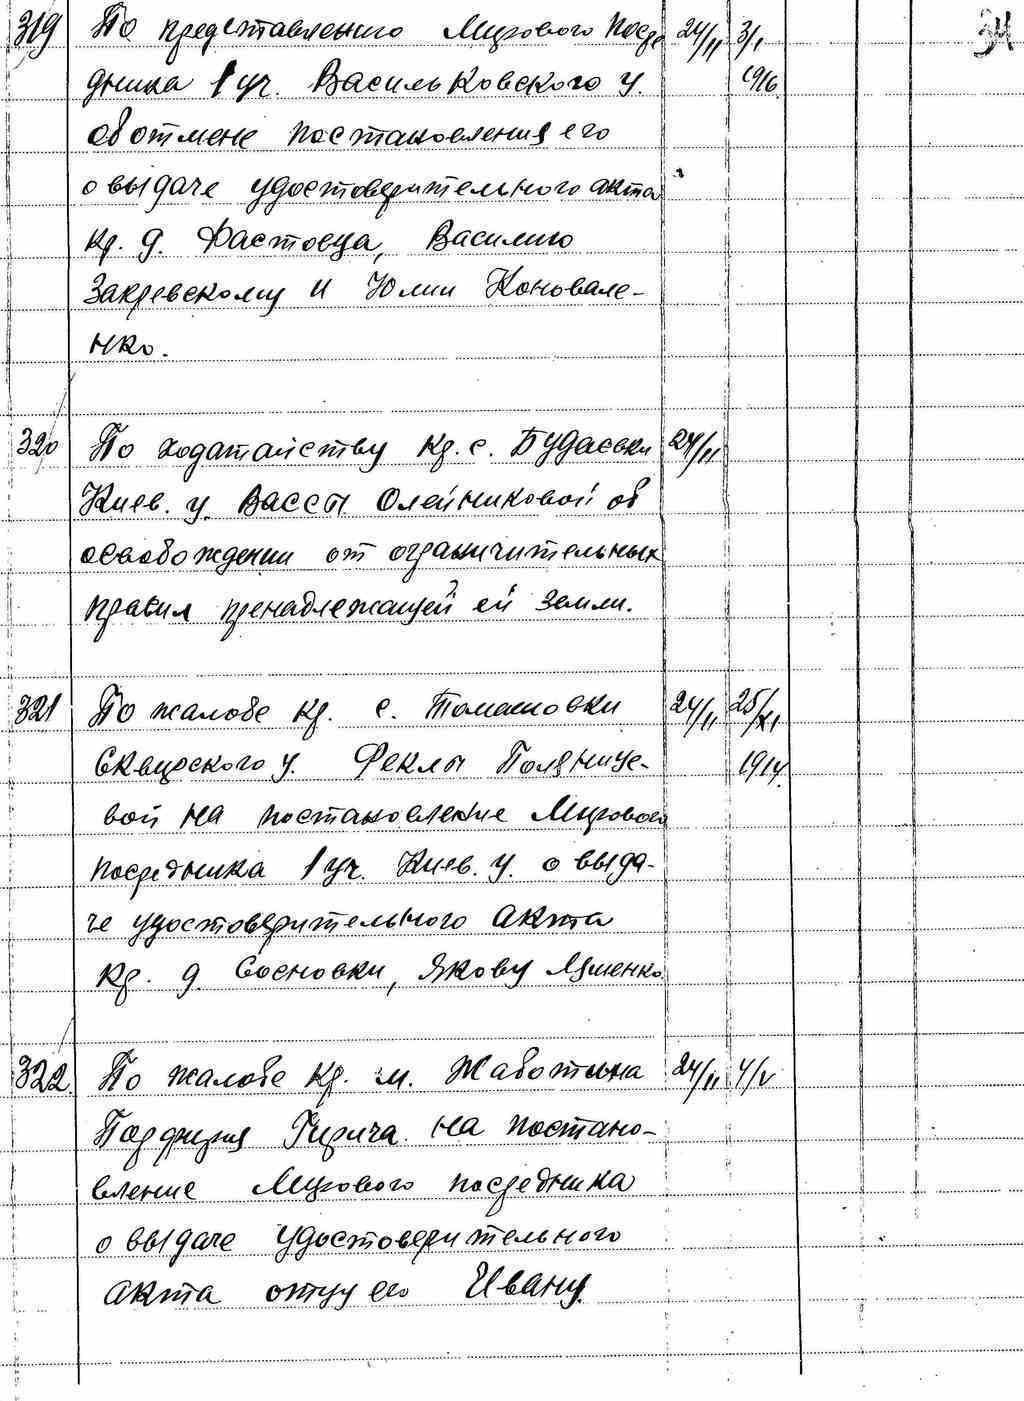 34
319 По представлению Мирового Посре- 24/II 3/I
дника 1 уч. Васильковского у. 1916.
об отмене постановления его
о выдаче удостоверительного акта
кр. д. Фастовца, Василию
Закревскому и Юлии Коновале-
нко.
320 По ходатайству кр. с. Будаевки 24/II
Киев. у. Вассы Олейниковой об
освобождении от ограничительных
правил пренадлежащей ей земли.
321 По жалобе кр. с. Томашовки 24/II 25/XI
Сквирского у. Феклы Поляниче- 1914.
вой на постановление Мирового
посредника 1 уч. Киев. у. о выда-
че удостоверительного акта
кр. д. Сосновки, Якову Ляшенко.
322. По жалобе кр. м. Жаботина 24/II 4/V
Порфирия Гирича на постано-
вление Мирового посредника
о выдаче удостоверительного
акта отцу его Ивану.